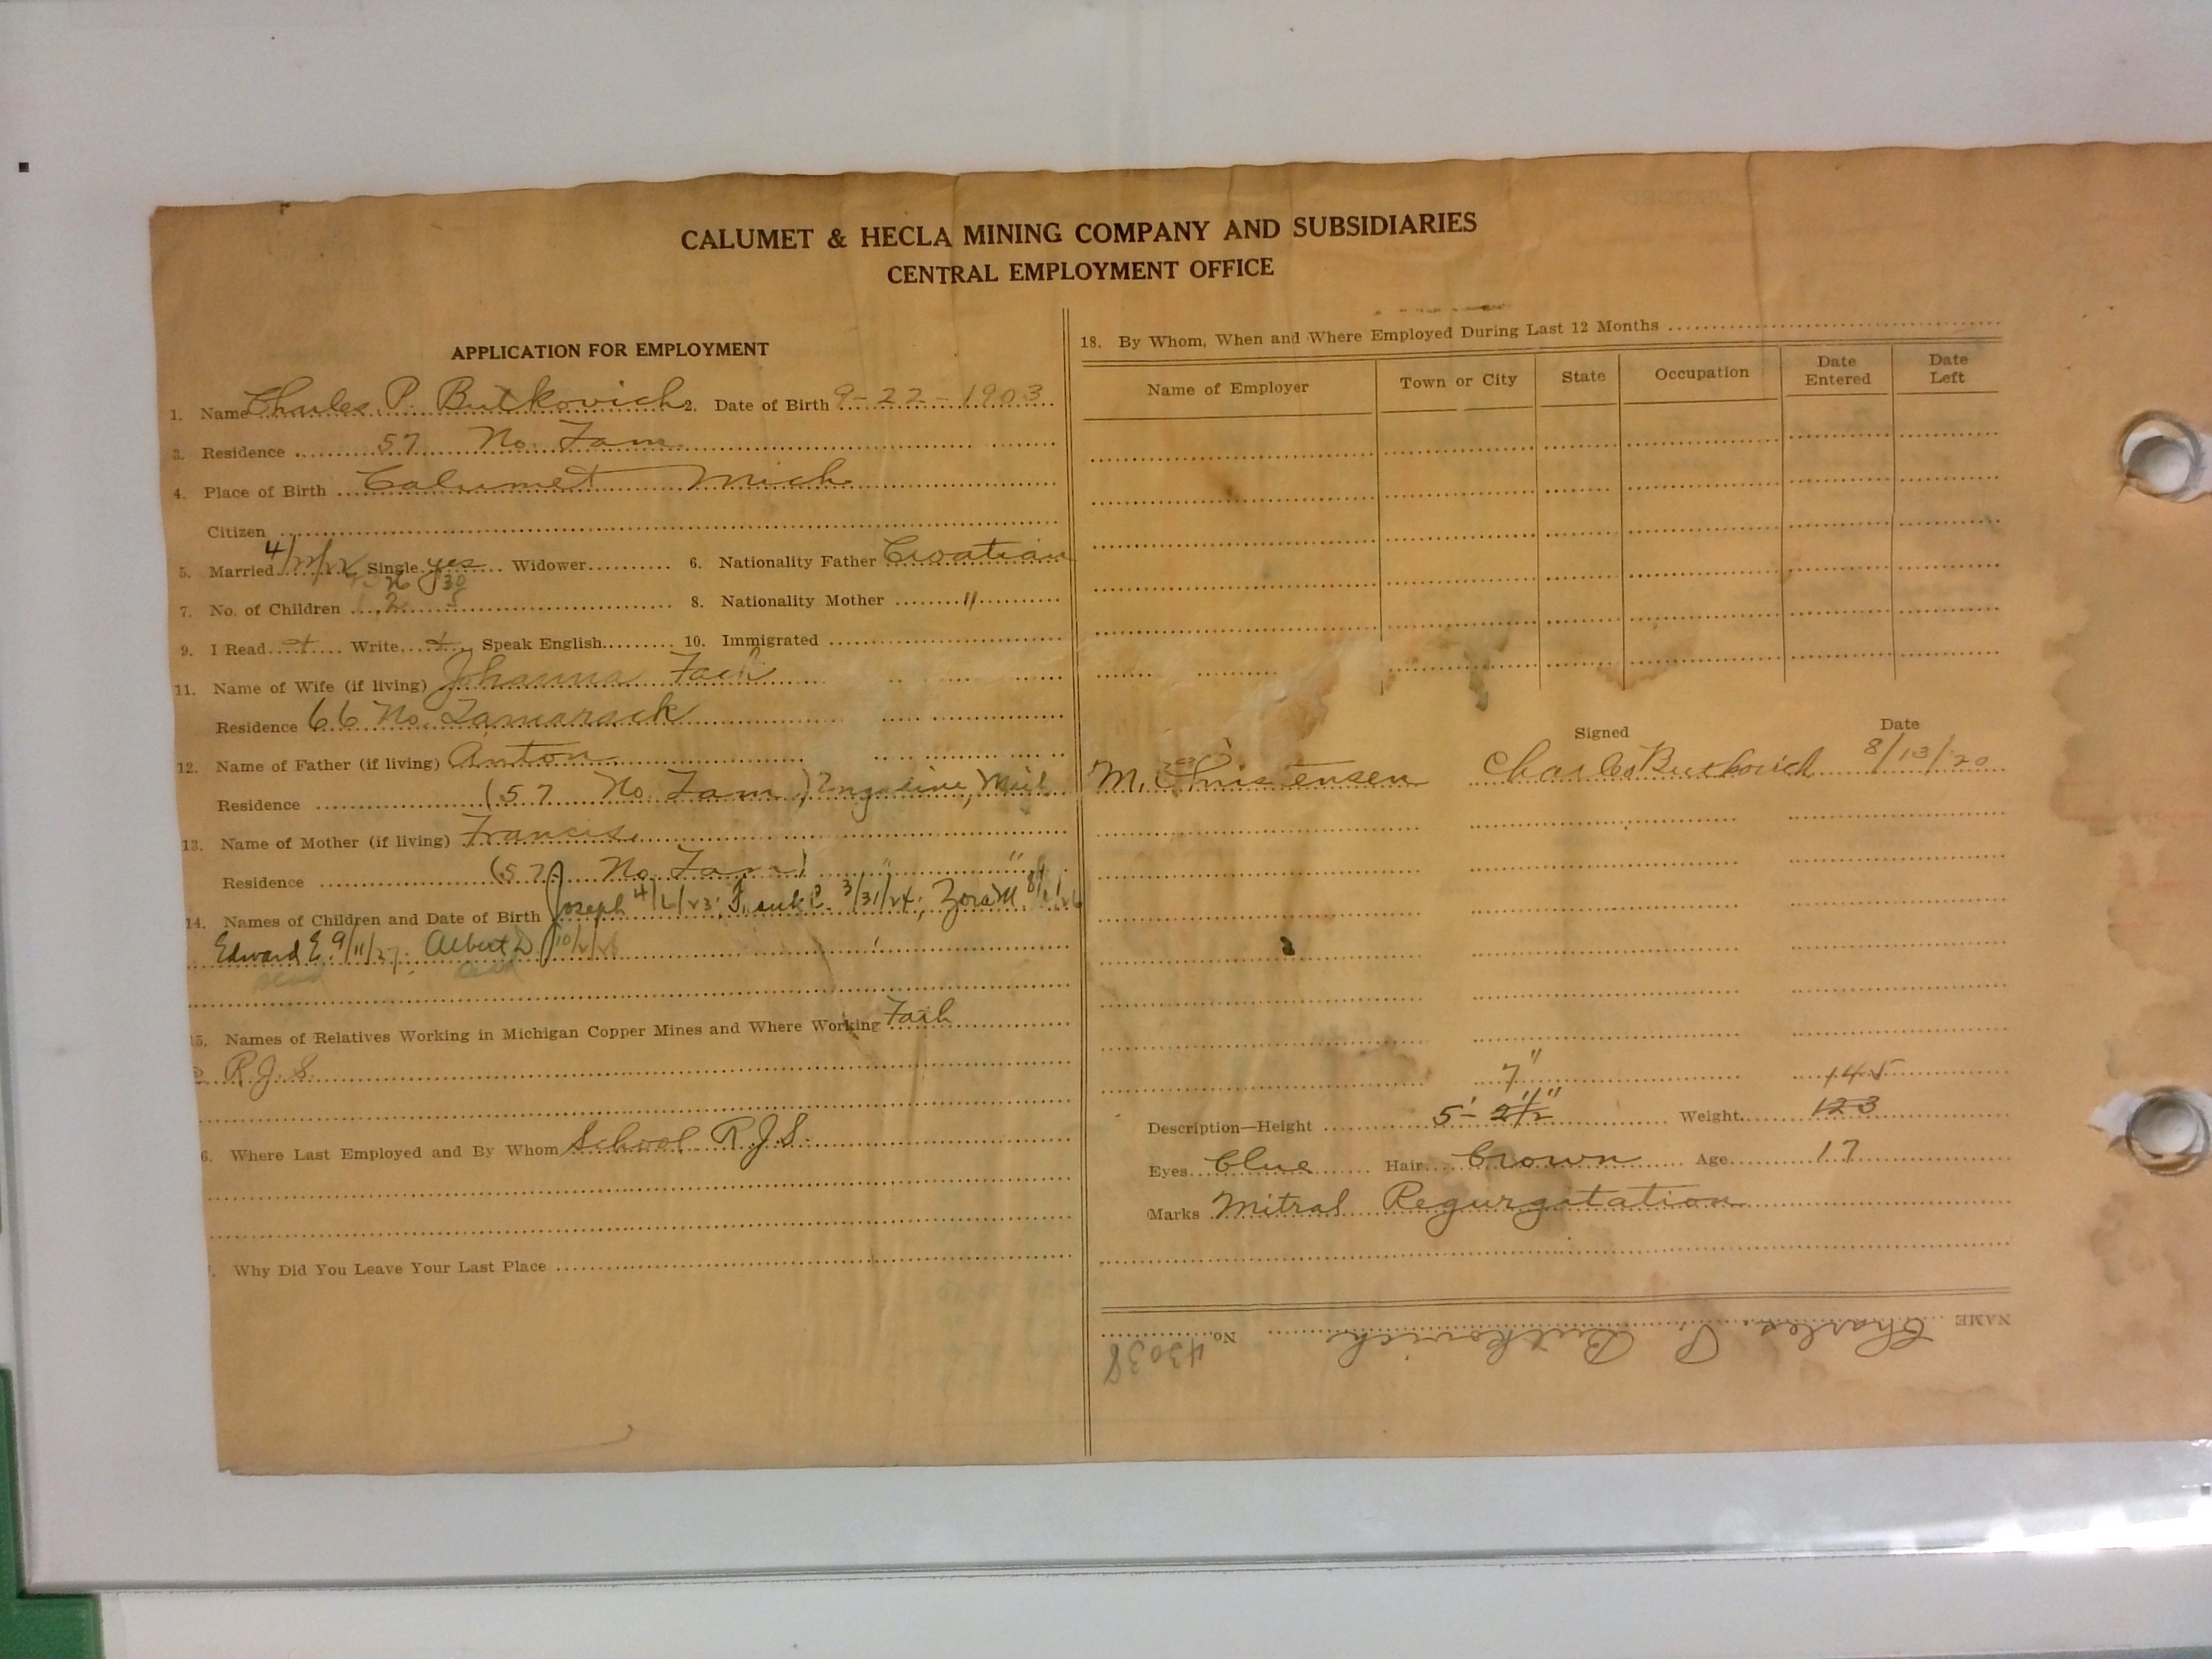 CALUMET & HECLA MINING COMPANY AND SUBSIDIARIES
CENTRAL EMPLOYMENT OFFICE
APPLICATION FOR EMPLOYMENT
1. Name Charles P. Butkovich 2. Date of Birth 9-22-1903
3. Residence 57 No. Tam
4. Place of Birth Calumet Mich
Citizen
5. Married Single yes Widower 6. Nationality Father Croatian
7. No. of Children 8. Nationality Mother "
9. I Read Write Speak English 10. Immigrated
11. Name of Wife (if living) Johanna
Residence 66 No. Tamarack
12. Name of Father (if living) Anton
Residence (57 No. Tam)
13. Name of Mother (if living) Francis
Residence (57 No Tam) " "
14. Names of Children and Date of Birth Joseph 4/6/23; Frank P. 3/31/24; Zora M.
Edward E. 9/11/27; Albert D
15. Names of Relatives Working in Michigan Copper Mines and Where Working
R.J.S.
6. Where Last Employed and By Whom School R.J.S.
Why Did You Leave Your Last Place
18. By Whom, When and Where Employed During Last 12 Months
Name of Employer Town or City State Occupation Date Entered Date Left
Signed Date
M. Christensen Charles Butkovich 8/13/20
7" 145
Description—Height 5'- 2½" Weight 123
Eyes blue Hair brown Age 17
Marks Mitral Regurgitation
NAME Charles P. Butkovich No. 43038